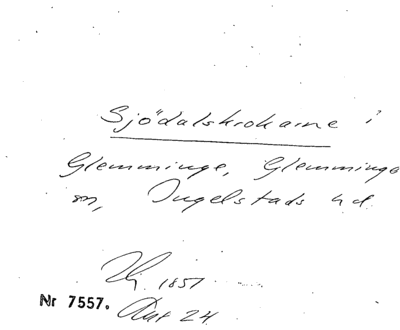 Sjödalskrokarne i
Glemminge, Glemminge
sn, Ingelstads hd
1851
Nr 7557. Ant 24